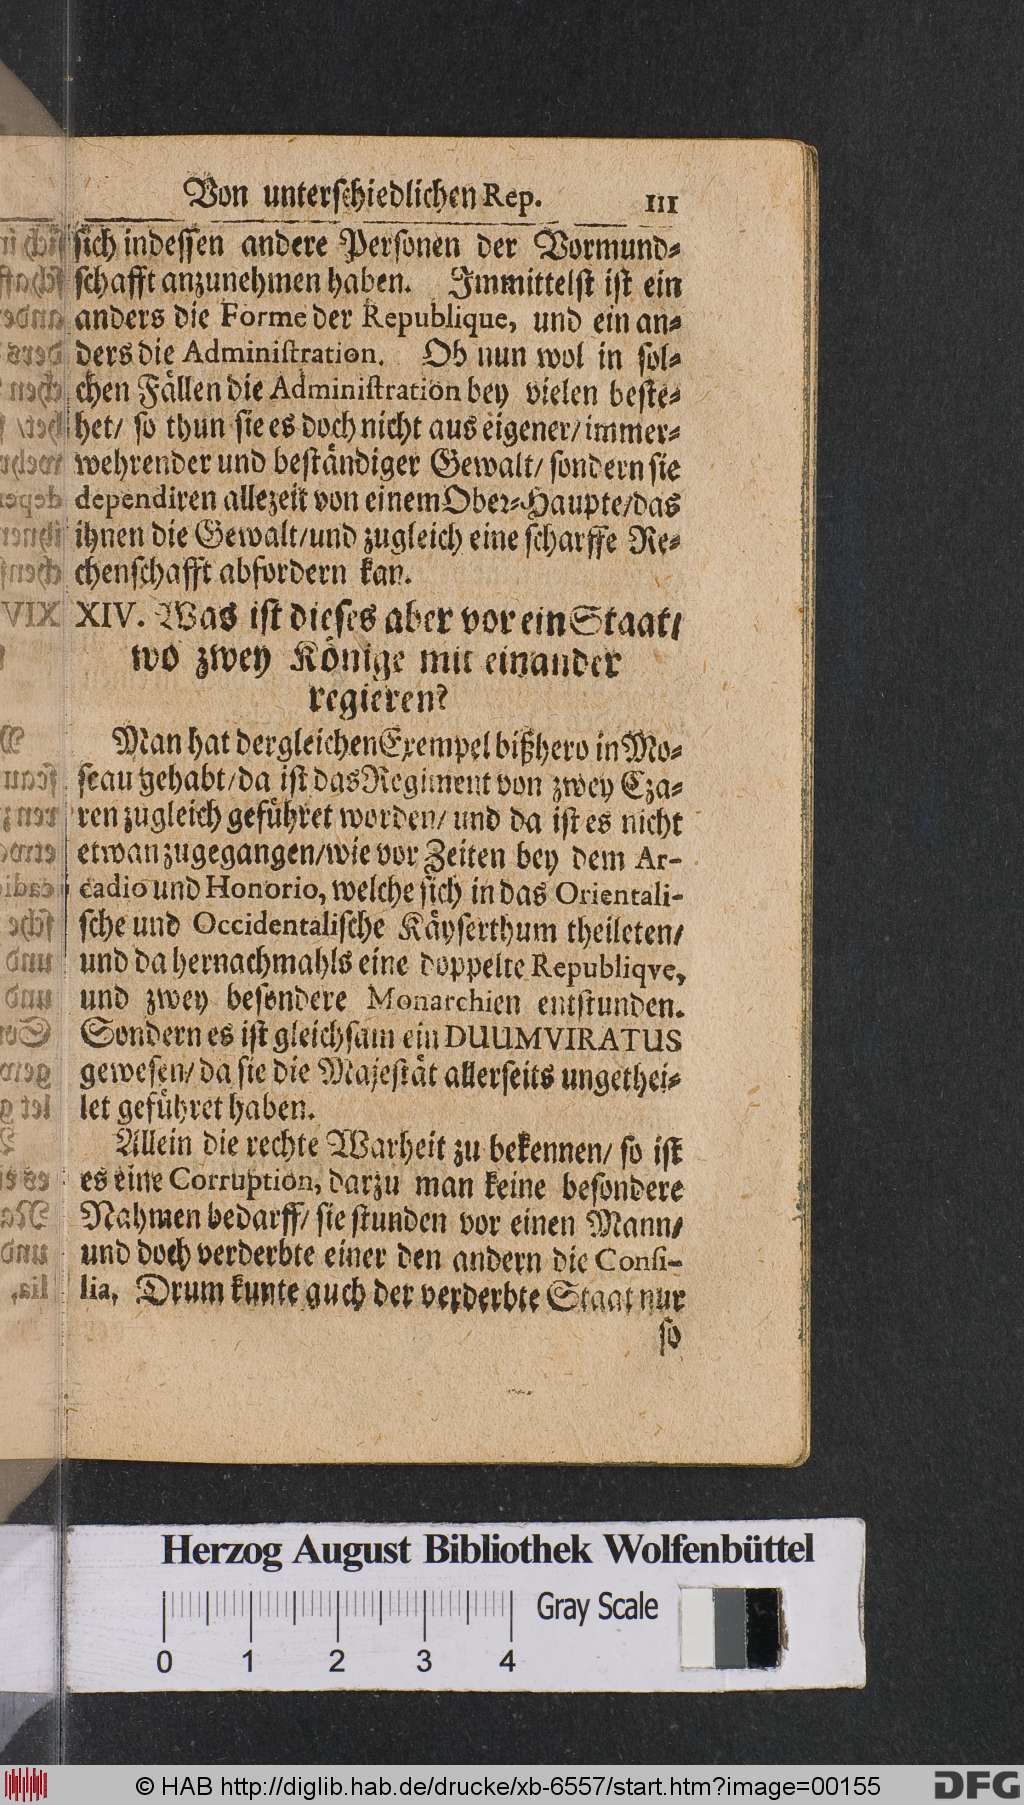 Von unterschiedlichen Rep. 111
sich indessen andere Personen der Vormund-
schafft anzunehmen haben. Immittelst ist ein
anders die Forme der Republique, und ein an-
ders die Administration. Ob nun wol in sol-
chen Fällen die Administration bey vielen beste-
het/ so thun sie es doch nicht aus eigener/ immer-
wehrender und beständiger Gewalt/ sondern sie
dependiren allezeit von einem Ober-Haupte/ das
ihnen die Gewalt/ und zugleich eine scharffe Re-
chenschafft abfordern kan.
XIV. Was ist dieses aber vor ein Staat/
wo zwey Könige mit einander
regieren?
Man hat dergleichen Exempel bißhero in Mo-
scau gehabt/ da ist das Regiment von zwey Cza-
ren zugleich geführet worden/ und da ist es nicht
etwan zugegangen/ wie vor Zeiten bey dem Ar-
cadio und Honorio, welche sich in das Orientali-
sche und Occidentalische Käyserthum theileten/
und da hernachmahls eine doppelte Republiqve,
und zwey besondere Monarchien entstunden.
Sondern es ist gleichsam ein DUUMVIRATUS
gewesen/ da sie die Majestät allerseits ungethei-
let geführet haben.
Allein die rechte Warheit zu bekennen/ so ist
es eine Corruption, darzu man keine besondere
Nahmen bedarff/ sie stunden vor einen Mann/
und doch verderbte einer den andern die Consi-
lia, Drum kunte auch der verderbte Staat nur
so
Herzog August Bibliothek Wolfenbüttel
Gray Scale
0 1 2 3 4
© HAB http://diglib.hab.de/drucke/xb-6557/start.htm?image=00155
DFG